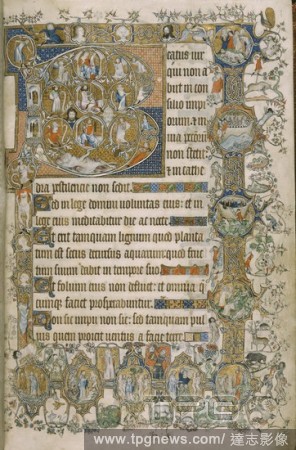 catus uir
qui non a
biit in con
silio impi
orum: & in
uia peccato
non stetit:
& in cathe
dra pestilencie non sedit.
Sed in lege domini uoluntas eius: et in
lege eius meditabitur die ac nocte
Et erit tamquam lignum quod planta
tum est secus decursus aquarum: quod fruc
tum suum dabit in tempore suo
Et folium eius non defluet: et omnia q
cumque faciet prosperabuntur.
Non sic impii non sic: sed tamquam pul
uis quem proicit uentus a facie terre
www.tpgnews.com/ 達志影像